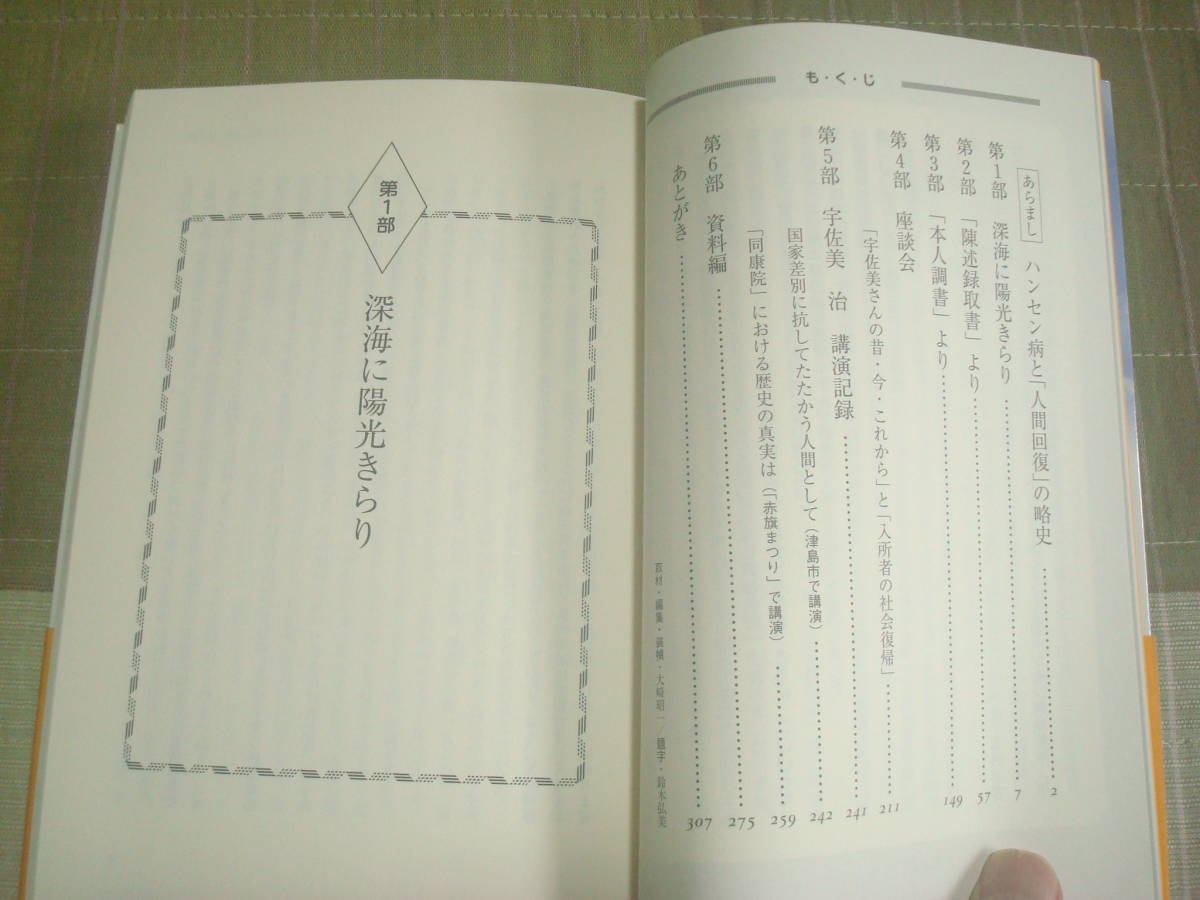 も・く・じ
あらまし ハンセン病と「人間回復」の略史 2
第1部 深海に陽光きらり 7
第2部 「陳述録取書」より 57
第3部 「本人調書」より 149
第4部 座談会
「宇佐美さんの昔・今・これから」と「入所者の社会復帰」 211
第5部 宇佐美 治 講演記録 241
国家差別に抗してたたかう人間として(津島市で講演) 242
「同康院」における歴史の真実は(「赤旗まつり」で講演) 259
第6部 資料編 275
あとがき 307
取材・編集・装幀・大崎昭一/題字・鈴木弘美
第1部
深海に陽光きらり